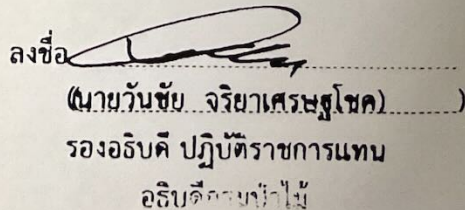 ลงชื่อ
(นายวันชัย จริยาเศรษฐโชค)
รองอธิบดี ปฏิบัติราชการแทน
อธิบดีกรมป่าไม้